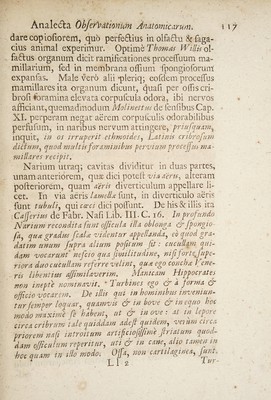 Analecta Observationum Anatomicarum. 117
dare copiosiorem, quò perfectius in olfactu & saga-
cius animal experimur. Optimè Thomas Willis ol-
factus organum dicit ramificationes processuum ma-
millarium, sed in membrana ossium spongiosorum
expansas. Male verò alii pleriq; eosdem processus
mamillares ita organum dicunt, quasi per ossis cri-
brosi foramina elevata corpuscula odora, ibi nervos
afficiant, quemadmodum Molinetus de sensibus Cap.
XI. perperam negat aërem corpusculis odorabilibus
perfusum, in naribus nervum attingere, priusquam,
inquit, in os irruperit ethmoides, Latinis cribrosum
dictum, quod multis foraminibus pervium processus ma-
millares recipit.
Narium utraq; cavitas dividitur in duas partes,
unam anteriorem, quæ dici potest via aëris, alteram
posteriorem, quam aëris diverticulum appellare li-
cet. In via aëris lamellæ sunt, in diverticulo aëris
sunt tubuli, qui caeci dici possunt. De his & illis ita
Casserius de Fabr. Nasi Lib. III. C. 16. In profundo
Narium recondita sunt ossicula illa oblonga & spongio-
sa, quæ gradus scalæ videntur appellanda, eò quod gra-
datim unum supra alium positum sit: cucullam qui-
dam vocarunt nescio qua similitudine, nisi forte supe-
riora duo cucullam referre velint, quæ ego concha Vene-
ris libentius assimilaverim. Manicam Hippocrates
non ineptè nominavit. Turbines ego & à forma &
officio vocarim. De illis qui in hominibus inveniun-
tur semper loquar, quamvis & in bove & in equo hoc
modo maximè se habent, ut & in ove: at in lepore
circa cribrum tale quiddam adest quidem, verùm circa
priorem nasi introitum artificiosissimè striatum quod-
dam ossiculum reperitur, uti & in cane, alio tamen in
hoc quam in illo modo. Ossa, non cartilaginea, sunt.
L l 2 Tur-